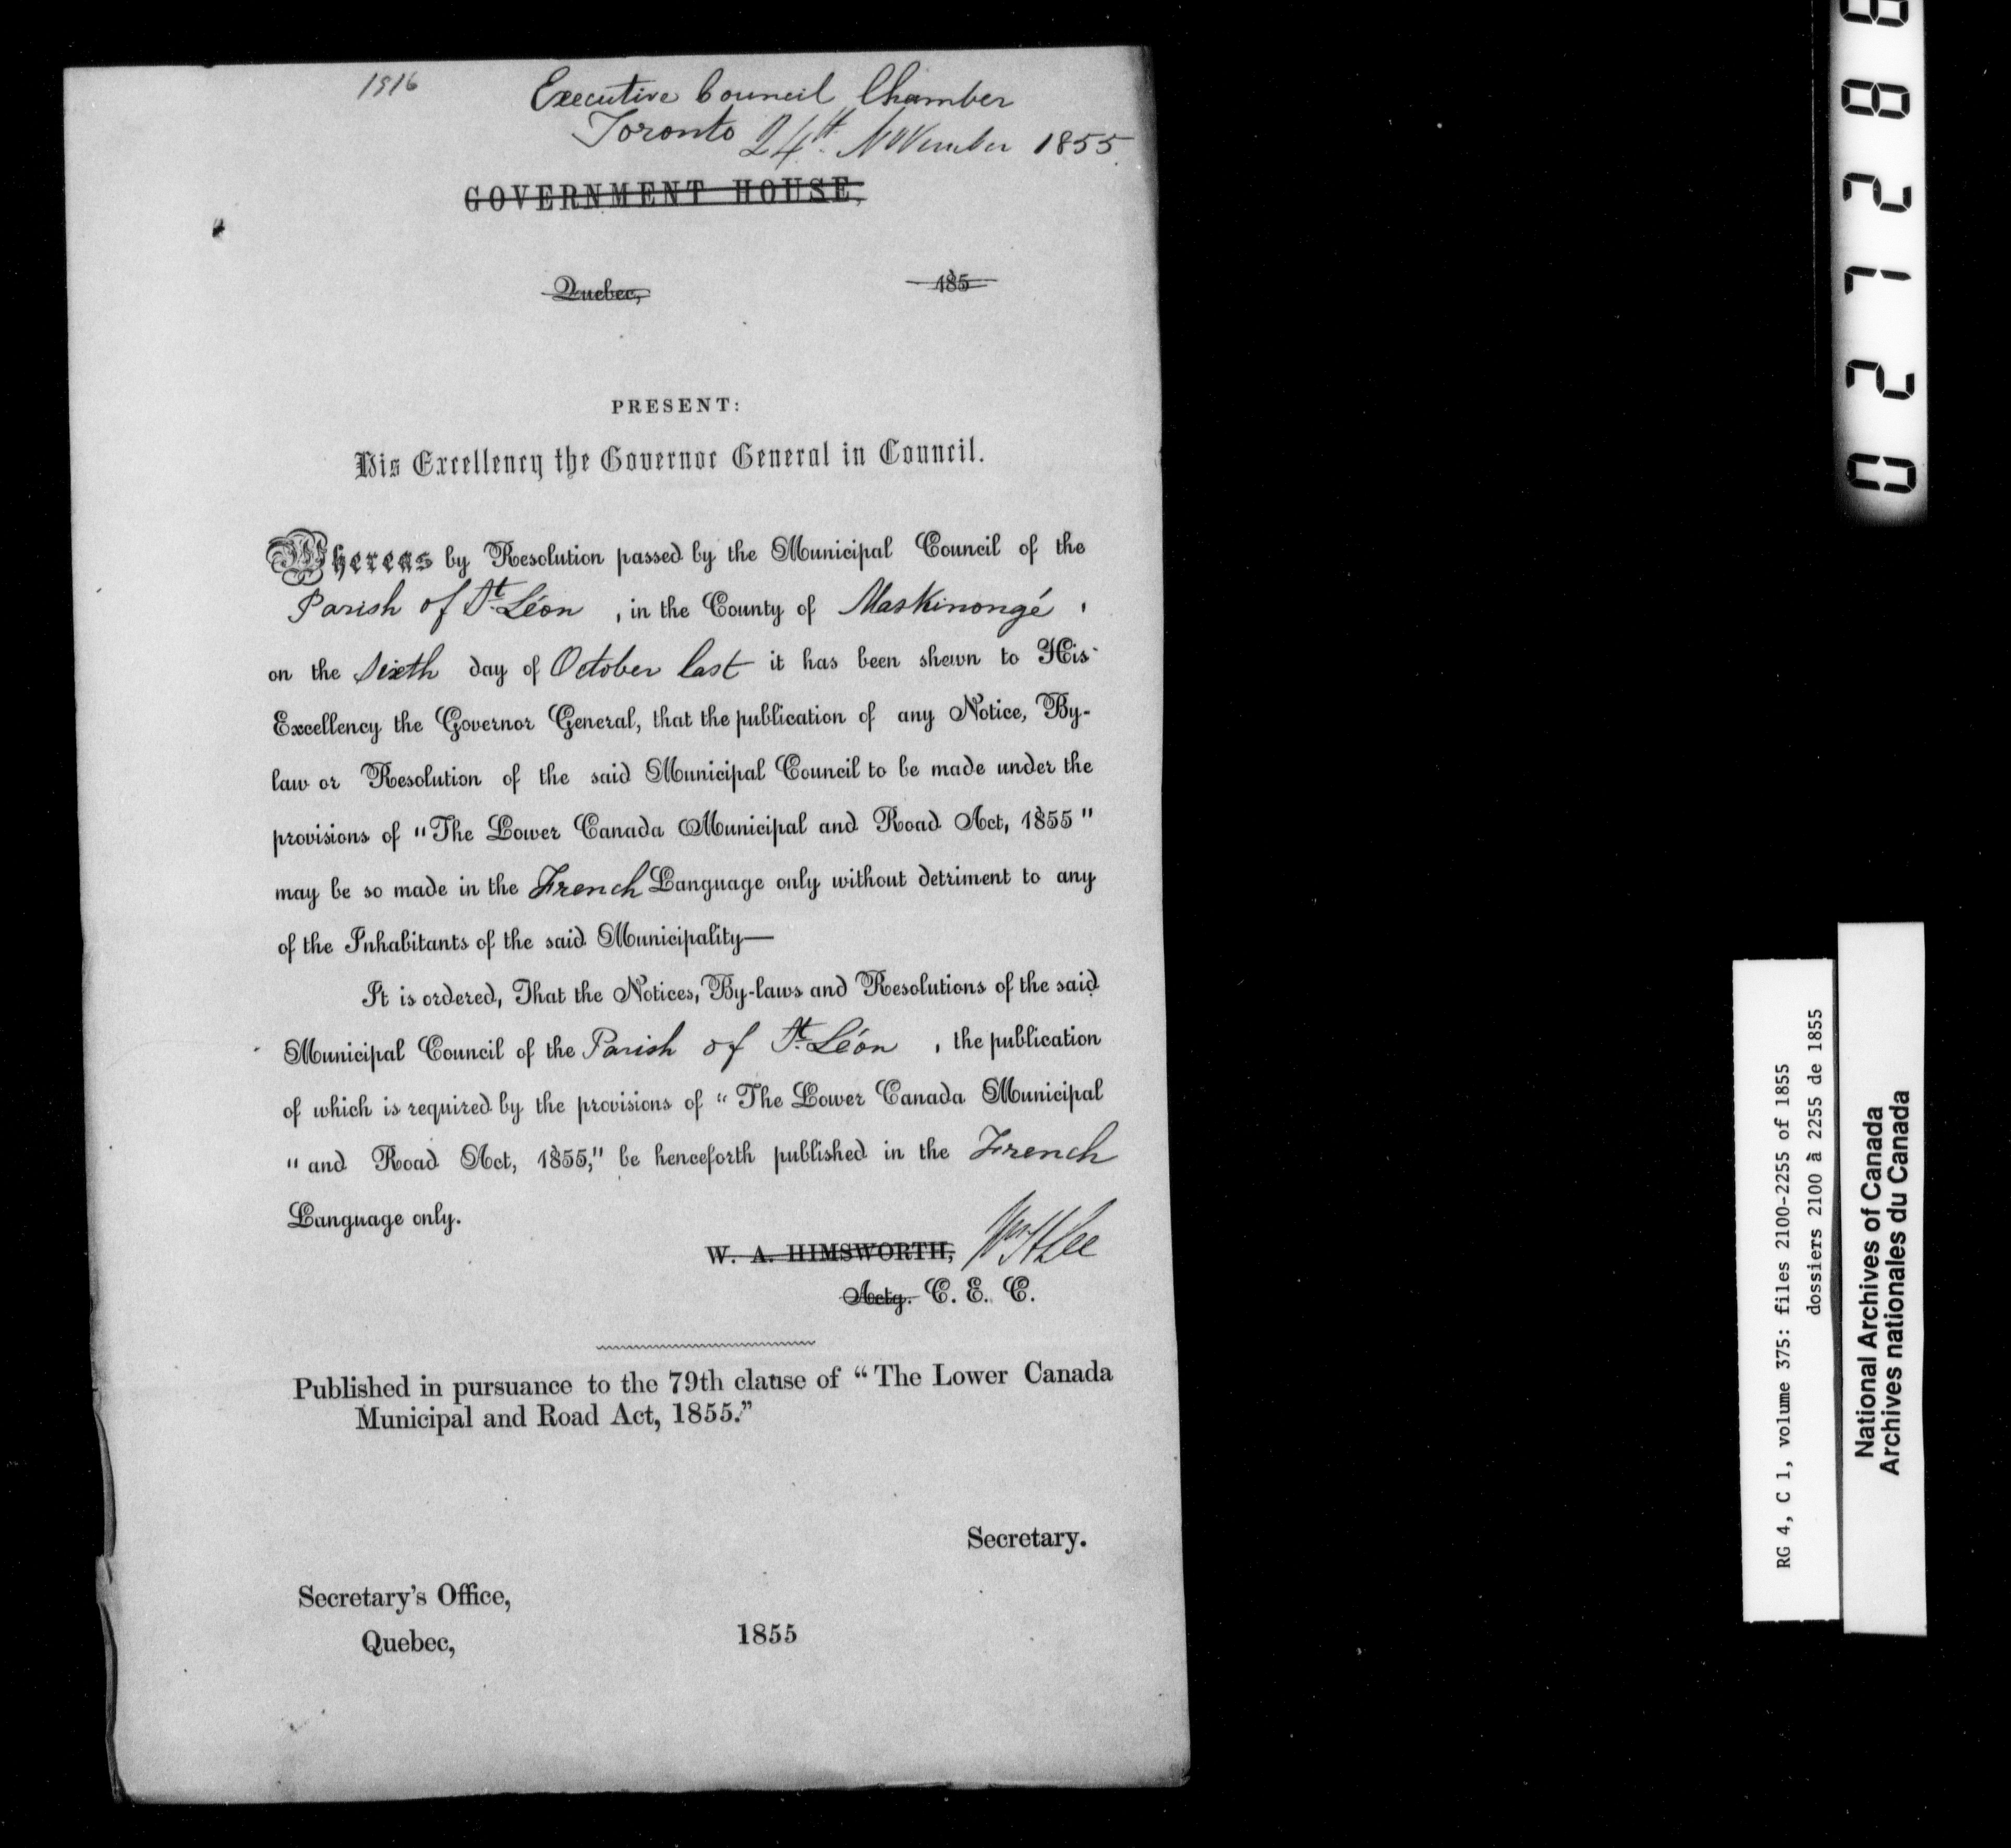 1916
Executive Council Chamber
Toronto 24th November 1855.
GOVERNMENT HOUSE,
Quebec, 185
PRESENT:
His Excellency the Governor General in Council.
Whereas by Resolution passed by the Municipal Council of the
Parish of St. Léon , in the County of Maskinongé ,
on the sixth day of October last it has been shewn to His
Excellency the Governor General, that the publication of any Notice, By-
law or Resolution of the said Municipal Council to be made under the
provisions of "The Lower Canada Municipal and Road Act, 1855"
may be so made in the French Language only without detriment to any
of the Inhabitants of the said Municipality—
It is ordered, That the Notices, By-laws and Resolutions of the said
Municipal Council of the Parish of St. Léon , the publication
of which is required by the provisions of "The Lower Canada Municipal
"and Road Act, 1855," be henceforth published in the French
Language only.
W. A. HIMSWORTH, Wm H Lee
Actg. C. E. C.
Published in pursuance to the 79th clause of "The Lower Canada
Municipal and Road Act, 1855."
Secretary.
Secretary's Office,
Quebec, 1855
RG 4, C 1, volume 375: files 2100-2255 of 1855
dossiers 2100 à 2255 de 1855
National Archives of Canada
Archives nationales du Canada